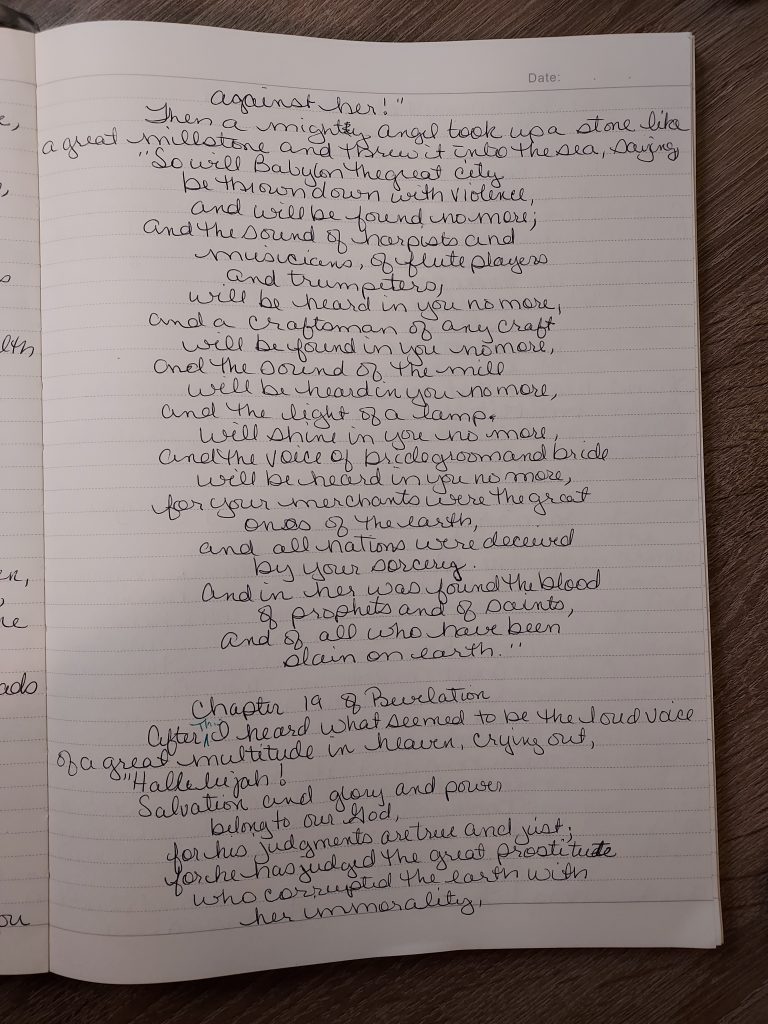 Date:
against her!"
Then a mighty angel took up a stone like
a great millstone and threw it into the sea, saying
"So will Babylon the great city
be thrown down with violence,
and will be found no more;
and the sound of harpists and
musicians, of flute players
and trumpeters,
will be heard in you no more,
and a craftsman of any craft
will be found in you no more,
and the sound of the mill
will be heard in you no more,
and the light of a lamp
will shine in you no more,
and the voice of bridegroom and bride
will be heard in you no more,
for your merchants were the great
ones of the earth,
and all nations were deceived
by your sorcery.
And in her was found the blood
of prophets and of saints,
and of all who have been
slain on earth."
Chapter 19 of Revelation
After This I heard what seemed to be the loud voice
of a great multitude in heaven, crying out,
"Hallelujah!
Salvation and glory and power
belong to our God,
for his judgments are true and just;
for he has judged the great prostitute
who corrupted the earth with
her immorality,
lth
en,
ads
ou